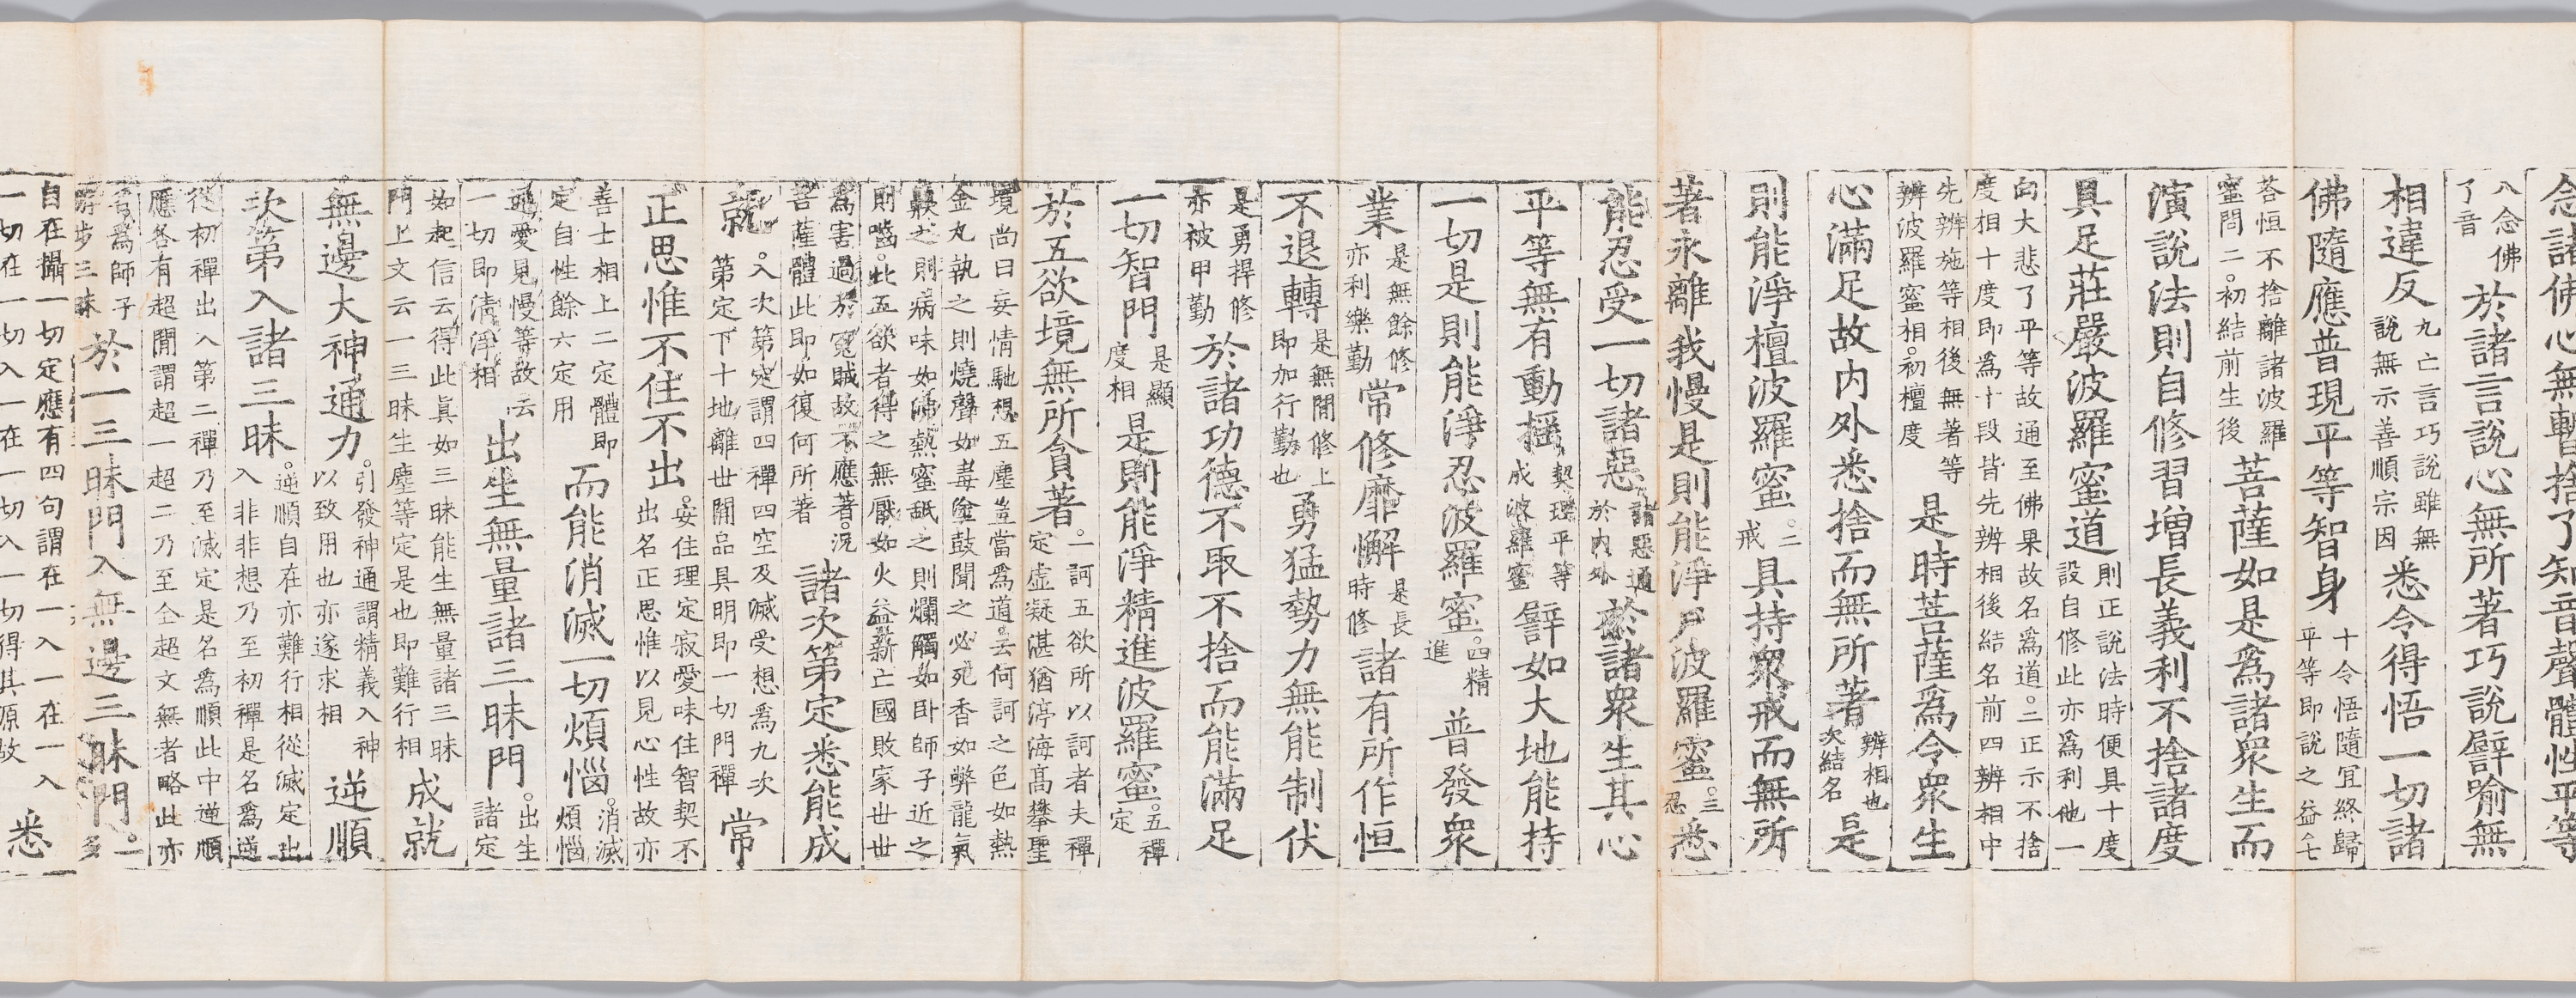 念諸佛心無暫捨了知音聲體性平等
八念佛
了音
於諸言說心無所著巧說譬喻無
相違反
九亡言巧說雖無
說無示善順宗因
悉令得悟一切諸
佛隨應普現平等智身
十令悟隨宜終歸
平等即說之益△七
荅恒不捨離諸波羅
蜜問二○初結前生後
菩薩如是為諸眾生而
演說法則自修習增長義利不捨諸度
具足莊嚴波羅蜜道
則正說法時便具十度
設自修此亦為利他一
向大悲了平等故通至佛果故名為道○二正示不捨
度相十度即為十段皆先辨相後結名前四辨相中
先辨施等相後無著等
辨波羅蜜相○初檀度
是時菩薩為令眾生
心滿足故內外悉捨而無所著
辨相也
次結名
是
則能淨檀波羅蜜
○二
戒
具持眾戒而無所
著永離我慢是則能淨尸波羅蜜
○三
忍
悉
能忍受一切諸惡
諸惡通
於內外
於諸眾生其心
平等無有動搖
契理平等
成波羅蜜
譬如大地能持
一切是則能淨忍波羅蜜
○四精
進
普發眾
業
是無餘修
亦利樂勤
常修靡懈
是長
時修
諸有所作恒
不退轉
是無間修上
即加行勤也
勇猛勢力無能制伏
是勇捍修
亦被甲勤
於諸功德不取不捨而能滿足
一切智門
是顯
度相
是則能淨精進波羅蜜
○五禪
定
於五欲境無所貪著
○一訶五欲所以訶者夫禪
定虛凝湛猶渟海高攀聖
境尚曰妄情馳想五塵豈當為道○云何訶之色如熱
金丸執之則燒聲如毒塗鼓聞之必死香如弊龍氣
齅之則病味如沸熱蜜舐之則爛觸如卧師子近之
則囓○此五欲者得之無厭如火益薪亡國敗家世世
為害過於冤賊故不應著○況
菩薩體此即如復何所著
諸次第定悉能成
就
○入次第定謂四禪四空及滅受想為九次
第定下十地離世間品具明即一切門禪
常
正思惟不住不出
○安住理定寂愛味住智契不
出名正思惟以見心性故亦
善士相上二定體即
定自性餘六定用
而能消滅一切煩惱
○消滅
煩惱
通愛見慢等故云
一切即清淨相
出生無量諸三昧門
○出生
諸定
如起信云得此真如三昧能生無量諸三昧
門上文云一三昧生塵等定是也即難行相
成就
無邊大神通力
○引發神通謂精義入神
以致用也亦遂求相
逆順
次第入諸三昧
○逆順自在亦難行相從滅定出
入非非想乃至初禪是名為逆
從初禪出入第二禪乃至滅定是名為順此中逆順
應各有超間謂超一超二乃至全超文無者略此亦
名為師子
遊步三昧
於一三昧門入無邊三昧門
○一
多
自在攝一切定應有四句謂在一入一在一入
一切在一切入一在一切入一切得其源故
悉